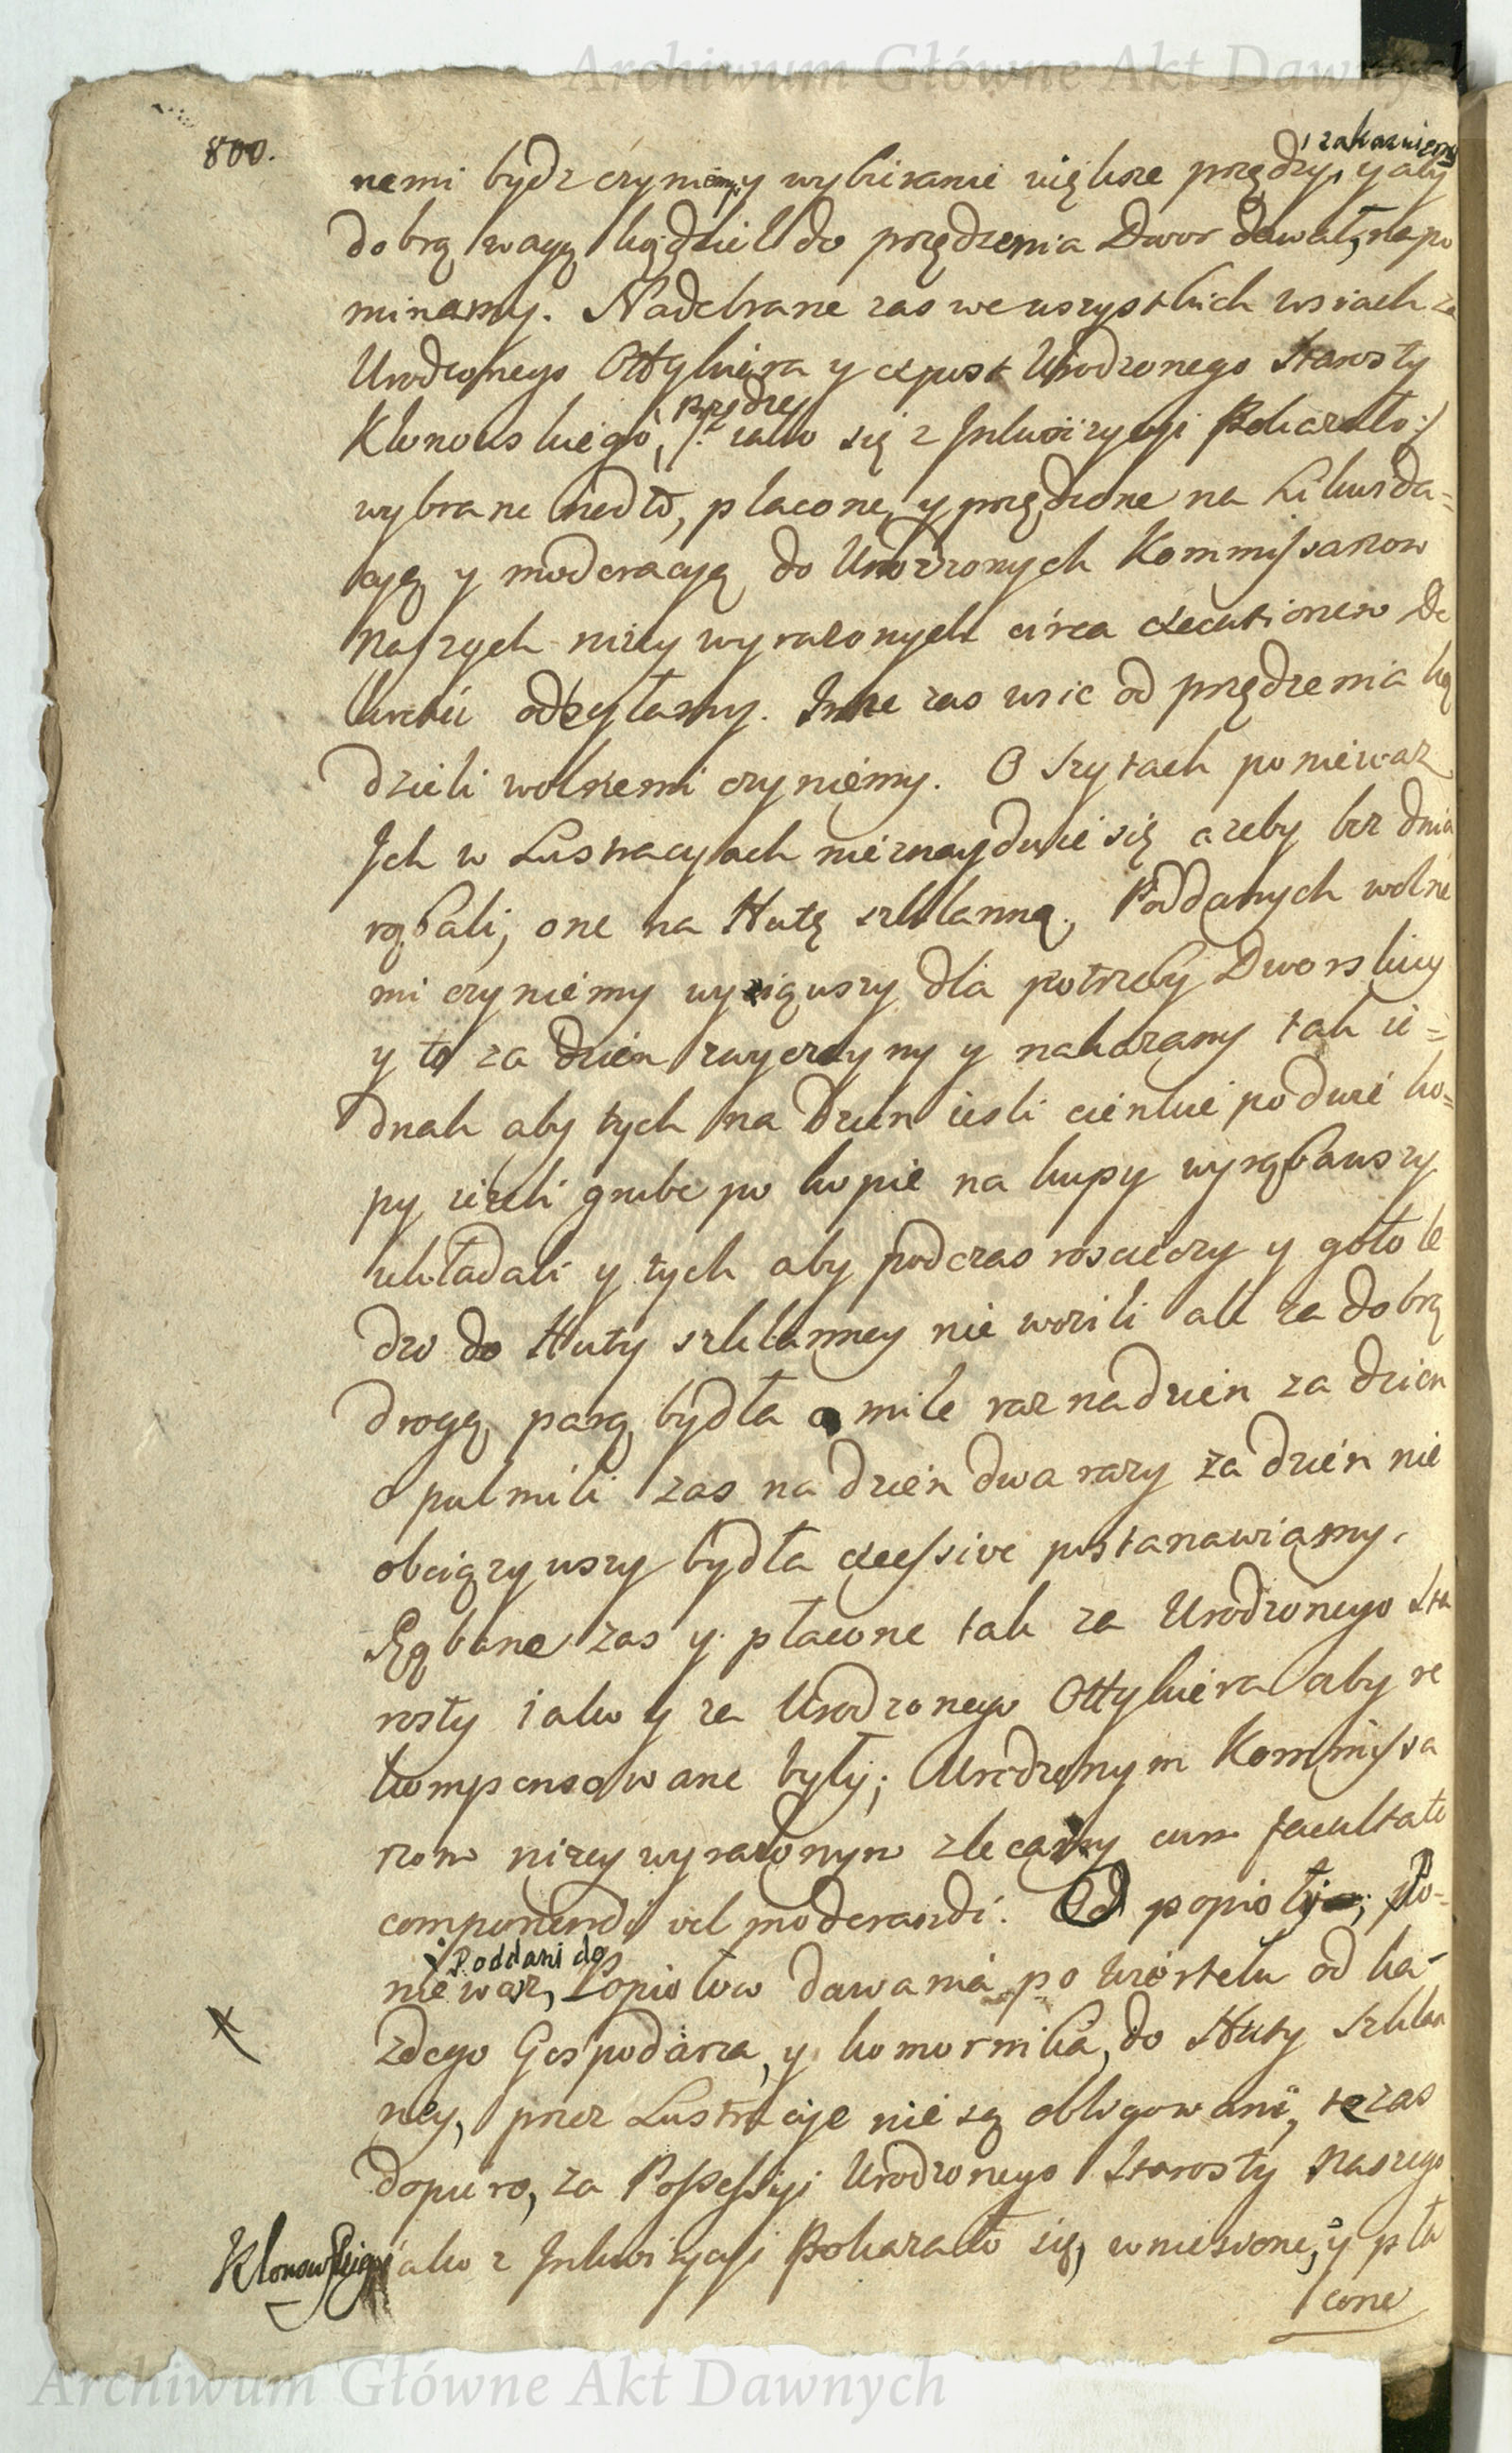 Archiwum Główne Akt Dawnych
800.
zakazuiemy
nemi bydz czyniemy y wybieranie większe przędzy, y aby
dobrą wagą kądziel do przędzenia Dwor dawał, napo
minamy. Nadebrane zas we wszystkich wsiach za
Urodzonego Ottylniera y expost Urodzonego Starosty
przędze
Klonowskiego, /: iako się z Inkwizycyi Pokazało :/
wybrane niedto, płacone y przędzone na Likwida=
cyą y moderacyą do Urodzonych Kommissarzow
Naszych niżey wyrażonych circa executionem De
kretu odsyłamy. Inne zas wsie od przędzenia ką
dzieli wolnemi czyniemy. O Szytach poniewaz
Ich w Lustracyach nieznayduie się azeby bez dnia
rąbali, one na Hutę szklanną, Poddanych wolne
mi czyniemy wyiąwszy dla potrzeby Dworskiey
y to za dzien zwyczayny y nakazany tak ie=
dnak aby tych na dzien iesli cienkie po dwie ko=
py iezeli grube po kopie na kupy wyrąbawszy
układali y tych aby podczas roscieczy y gołole
dzi do Huty szklanney nie wozili ale za dobrą
drogą parą bydła o mile raz na dzien za dzien
o pulmili zas na dzien dwa razy za dzien nie
obciązywszy bydła excessive postanawiamy.
Rąbane zas y płacone tak za Urodzonego Sta
rosty iako y za Urodzonego Ottylniera aby re
kompensowane były; Urodzonym Kommissa
rzom niżey wyrażonym zlecamy cum facultate
componendi vel moderandi. Od popioły po=
Poddani do
niewaz, Popiołow dawania po wiertelu od ka-
zdego Gospodarza, y komornika, do Huty szklan
ney, przez Lustracye nie są obligowani, te zas
dopiero, za Possessyi Urodzonego Starosty Naszego
Klonowskiego iako z Inkwizycyi Pokazało się, wniesione, y pła
cone
Archiwum Główne Akt Dawnych